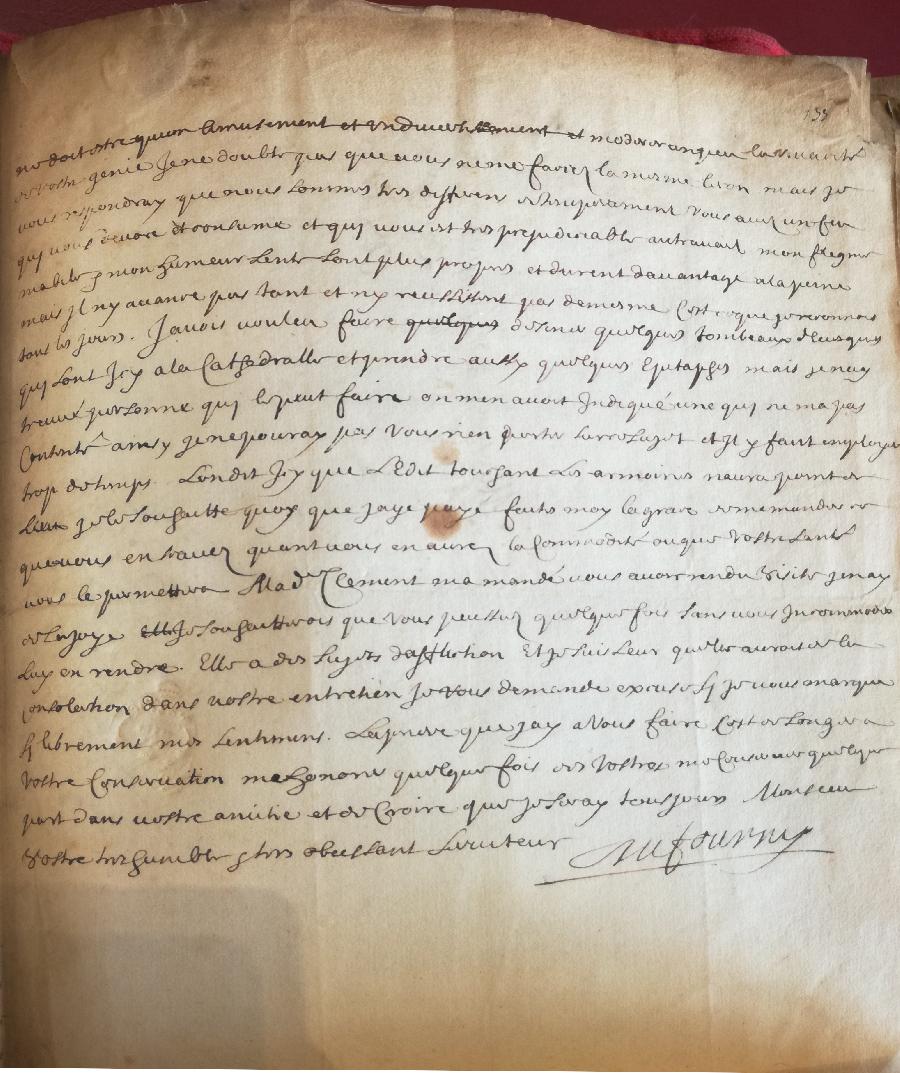 133
ne doit estre quun amusement et un divertissement et moderer un peu la vivacité
de vostre genie Je ne doubte pas que vous ne me faciez la mesme lecon mais je
vous respondray que nous sommes tres differens de temperament vous avez un feu
qui vous devore et consume et qui vous est tres prejudiciable au travail mon flegme
ma bile & mon humeur lente sont plus propres et durent davantage a la peine
mais Jl ny avance pas tant et ny reussissent pas de mesme Cest ce que je reconnois
tous les jours. Javois voulu faire quelques desiner quelques tombeaux dEvesques
qui sont Jcy a la Cathedralle et prendre aussy quelques Epitaphes mais je nay
treuvé personne qui le peut faire on men avoit Indiqué une qui ne ma pas
Contenté ainsy je ne pouray pas vous rien porter sur ce sujet et Jl y faut employer
trop de temps. Londit Jcy que LEdit touchant les armoiries naura point de
lieu je le souhaitte quoy que jaye payé faites moy la grace de me mander ce
que vous en savez quant vous en aurez la Commodité ou que vostre santé
vous le permettra Made Clement ma mandé vous avoir rendu visite jen ay
de la joye Elle Je souhaitterois que vous peussiez quelque fois sans vous Incommoder
luy en rendre. Elle a des sujets dafliction Et je suis seur quelle auroit de la
consolation dans vostre entretien Je vous demande excuse sy je vous marque
sy librement mes sentimens. La priere que jay a vous faire Cest de songer a
vostre Conservation me honorer quelque fois des vostres me Conserver quelque
part dans vostre amitié et de Croire que je seray tousjours Monsieur
Vostre tres humble & tres obeissant serviteur
Aufourny